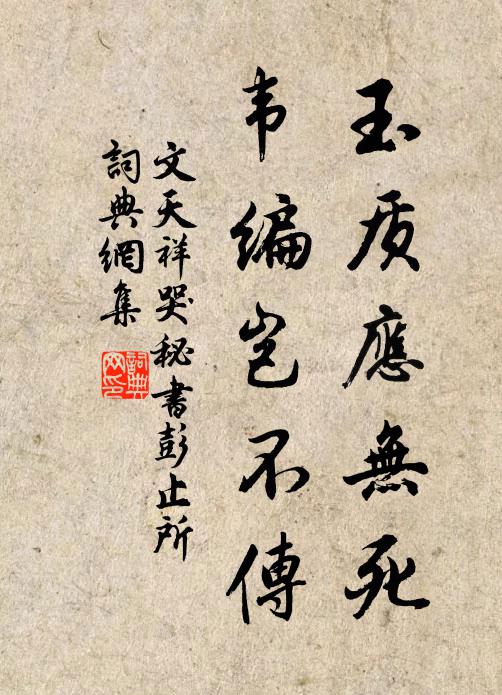 玉质應無死
韦编岂不傳
文天祥哭秘書彭止所
詞典網集
詞典网印